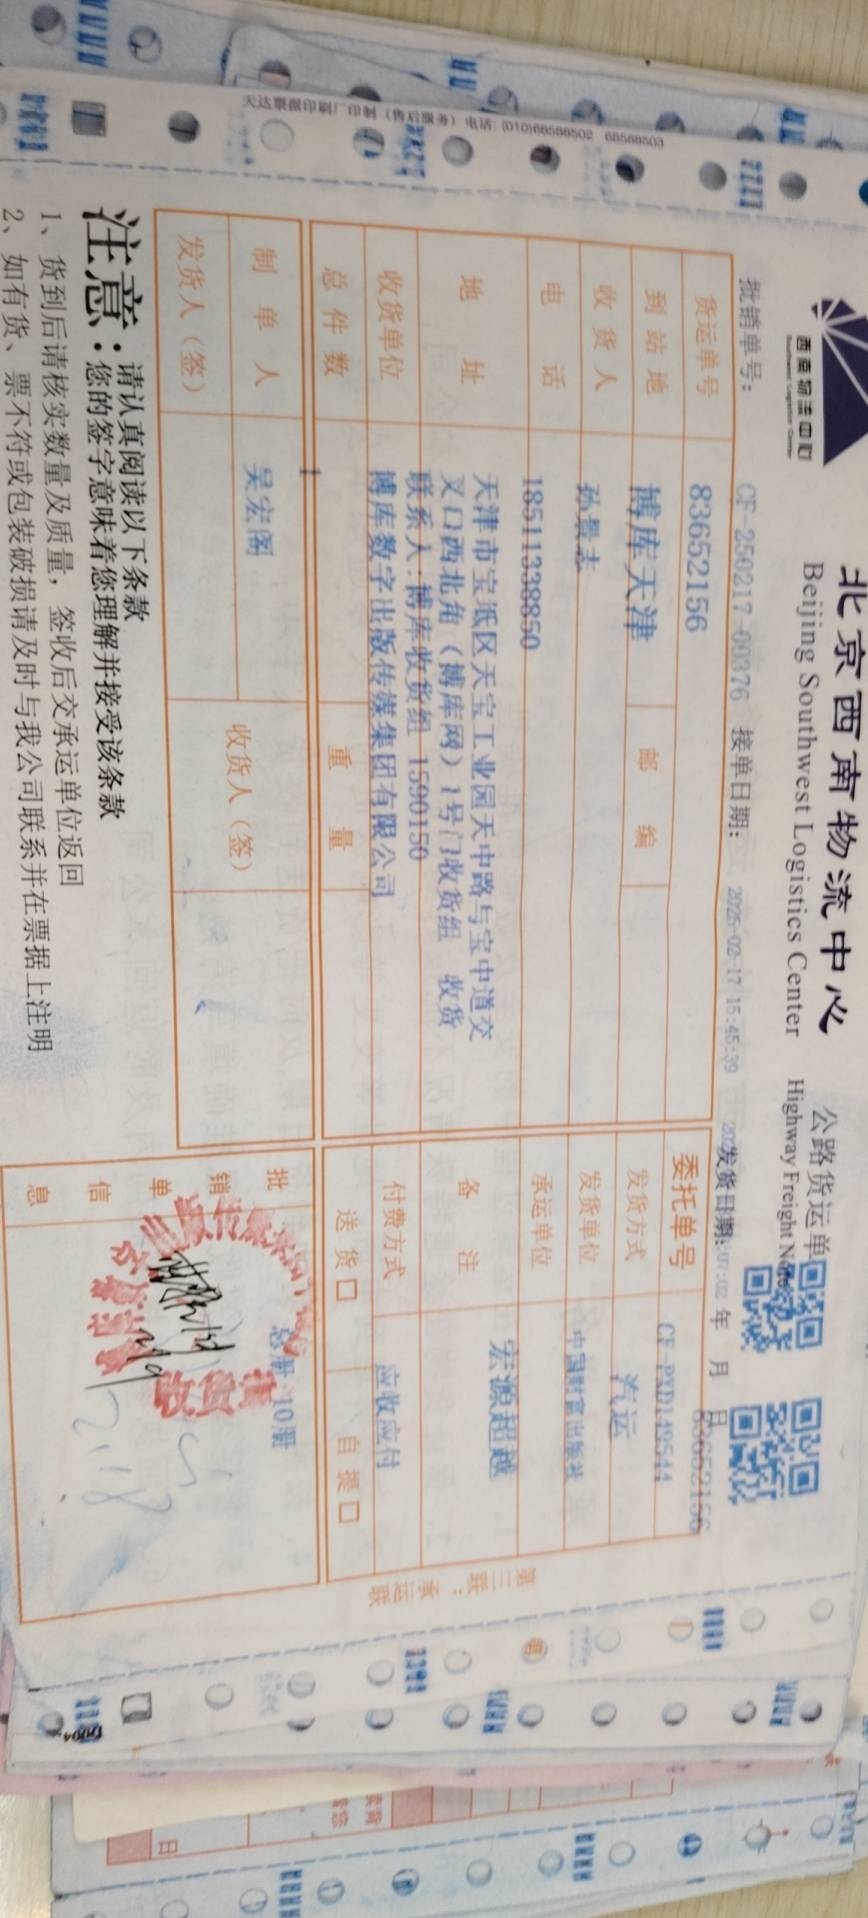 天达票据印刷厂印制（售后服务）电话: (010)68588502 68588503
西南物流中心
Southwest Logistics Center
北京西南物流中心
Beijing Southwest Logistics Center
公路货运单
Highway Freight Note
批销单号: CF-250217-00376 接单日期: 2025-02-17 15:45:39 发货日期: 年 月 日
83652156
货运单号 83652156 委托单号 CF-PXD149544
到站地 博库天津 邮编 发货方式 汽运
收货人 孙景志 发货单位 中国财富出版社
电话 18511338850 承运单位
地址 天津市宝坻区天宝工业园天中路与宝中道交
叉口西北角（博库网）1号门收货组 收货
联系人:博库收货组 1590150
备注 宏源超越
收货单位 博库数字出版传媒集团有限公司 付费方式 应收应付
总件数 1 重量 送货□ 自提□
制单人 吴宏阁 收货人（签）
发货人（签）
批销单信息 总册:10册
2.18
第三联：承运联
注意：请认真阅读以下条款
您的签字意味着您理解并接受该条款
1、货到后请核实数量及质量，签收后交承运单位返回
2、如有货、票不符或包装破损请及时与我公司联系并在票据上注明